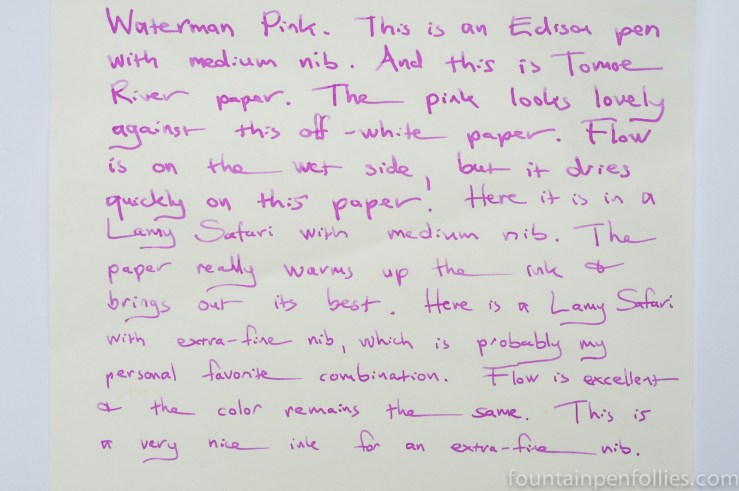 Waterman Pink. This is an Edison pen
with medium nib. And this is Tomoe
River paper. The pink looks lovely
against this off-white paper. Flow
is on the wet side, but it dries
quickly on this paper! Here it is in a
Lamy Safari with medium nib. The
paper really warms up the ink &
brings out its best. Here is a Lamy Safari
with extra-fine nib, which is probably my
personal favorite combination. Flow is excellent
& the color remains the same. This is
a very nice ink for an extra-fine nib.
fountainpenfollies.com